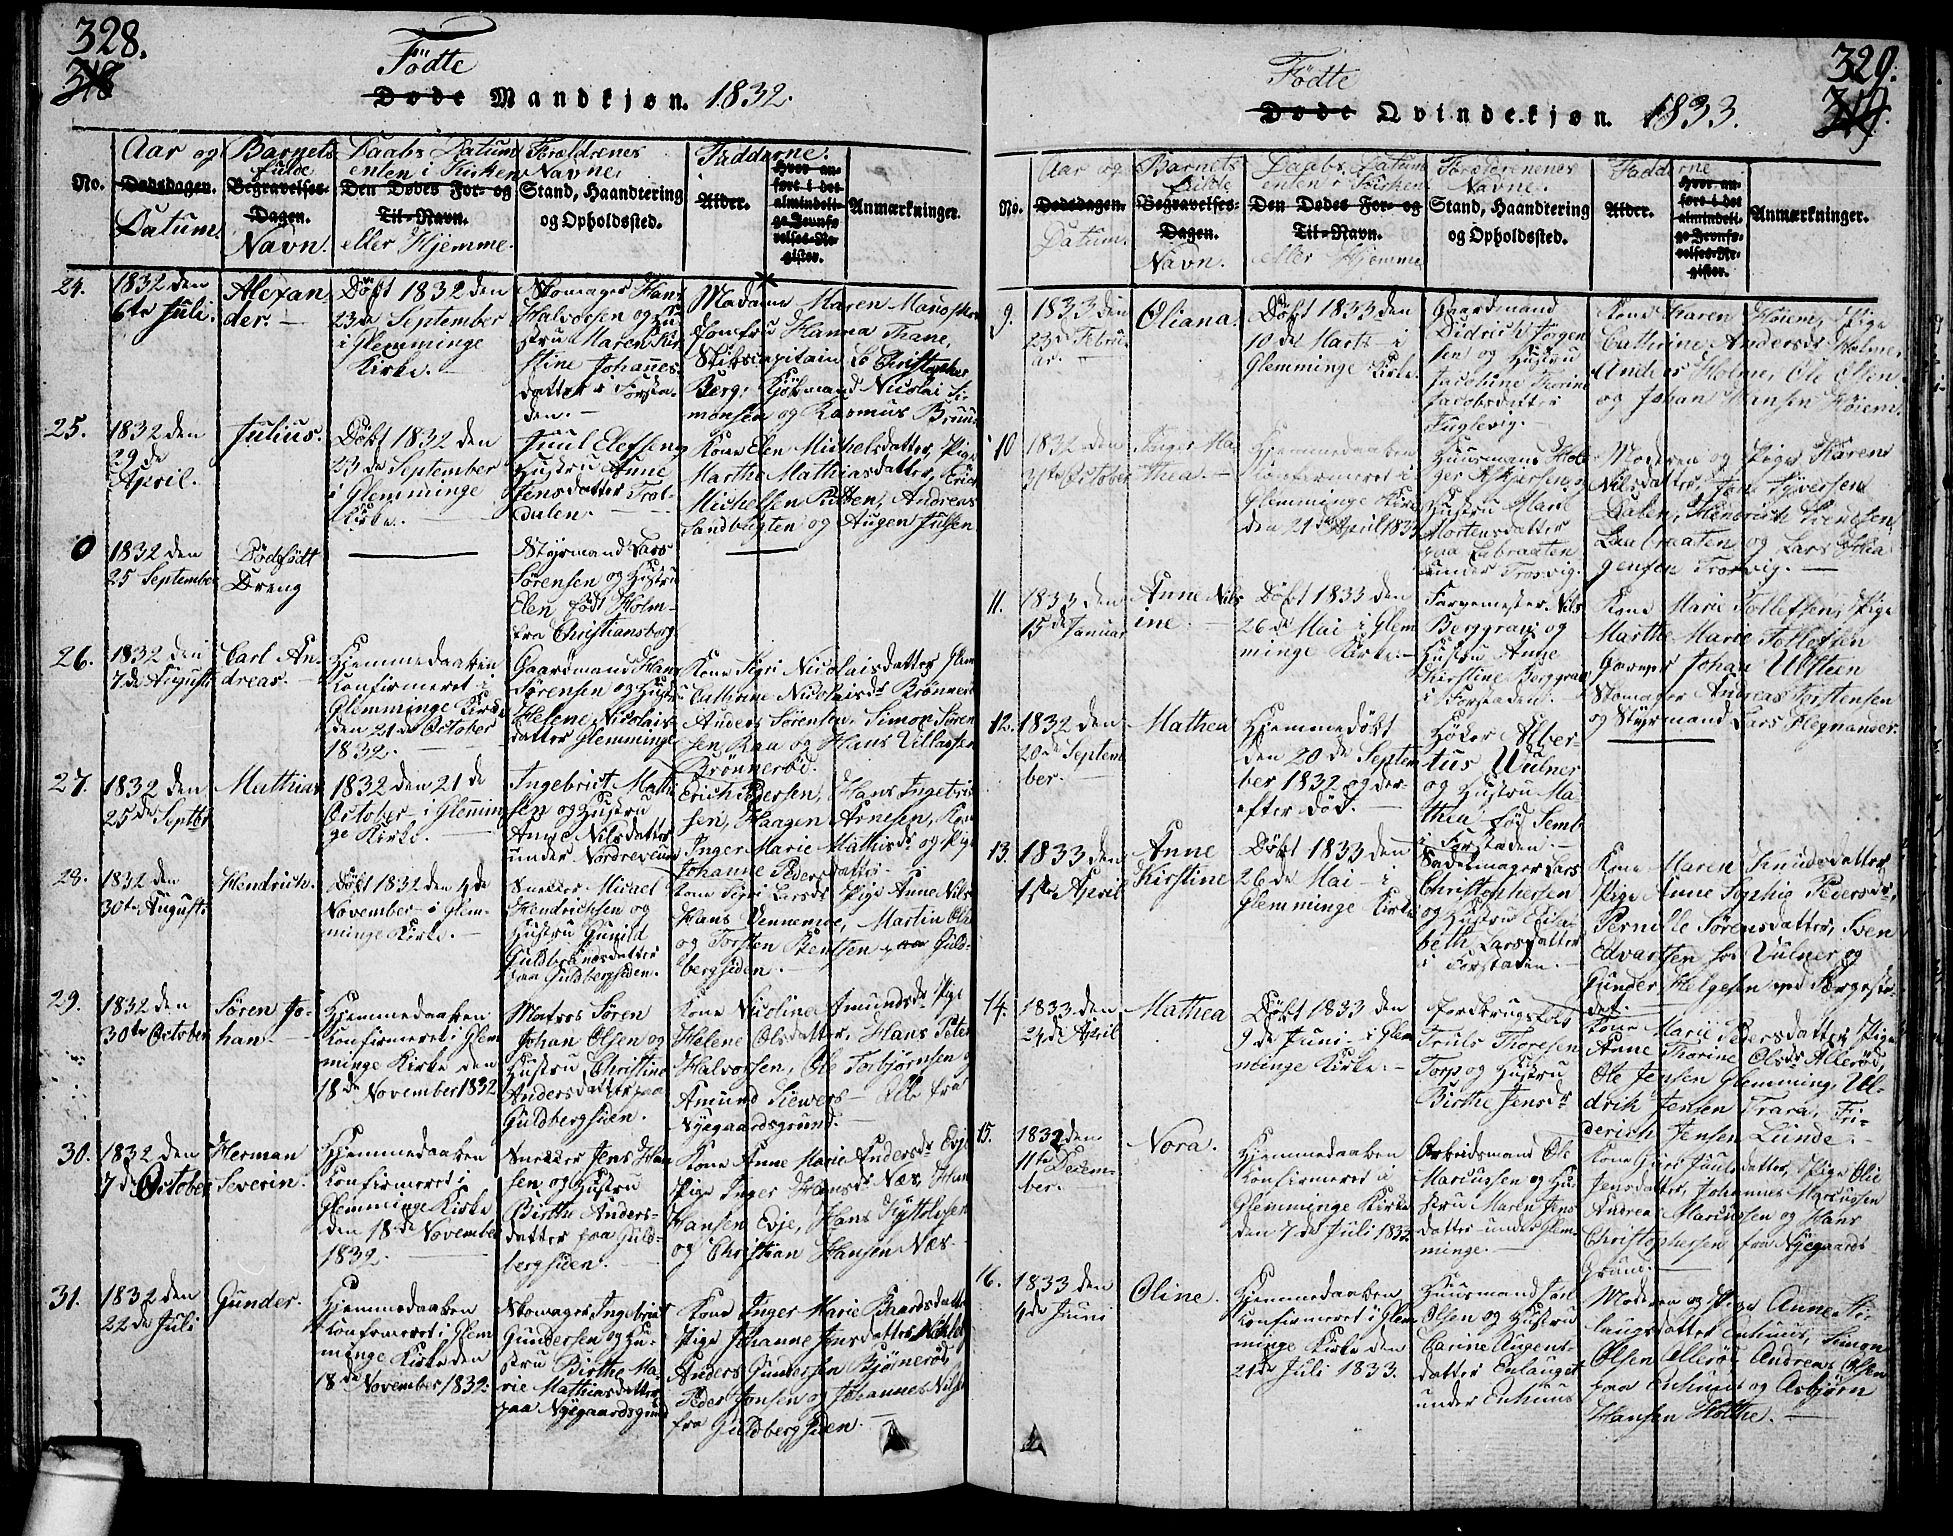 328.
318
Födte
Døde Mandkjøn. 1832.
No.
Aar og
Dødsdagen.
Datum.
Barnets
fulde
Begravelses-
Dagen.
Navn.
Daabs Datum
enten i Kirken
Den Dødes For- og
Til-Navn.
eller Hjemme.
Forældrenes
Navne,
Stand, Haandtering
og Opholdssted.
Fadderne.
Alder.
Hvor an-
ført i det
almindeli-
ge Jevnfø-
relses-Re-
gister.
Anmærkninger.
24.
1832 den
6te Juli.
Alexan
der.
Döbt 1832 den
23de September
i Glemminge
Kirke.
Skomager Hans
Halvorsen og Hu
stru Maren Kir
stine Johannes
datter i Forsta
den.
Madame Maren
Jomfru Hanna Thane,
Skibscapitain Christopher
Berg, Kjöbmand Nicolai Si
monsen og Rasmus Bruun
25.
1832 den
29de
April.
Julius.
Döbt 1832 den
23de September
i Glemminge
Kirke.
Juul Elefsen og
Hustru Anne
Jensdatter Trol-
dalen.
Kone Elen Michelsdatter, Pige
Marthe Mathiasdatter, Erich
Michelsen, Andreas
Sandbugten og Augen Julsen
0
1832 den
25 September
Dödfödt
Dreng
Styrmand Lars
Sörensen og Hustru
Elen född Holm-
fra Christiansborg
26.
1832 den
7de Augusti
Carl An
dreas.
Hjemmedaaben
Konfirmeret i
Glemminge Kirke
den 21de October
1832.
Gaardmand Hans
Sörensen og Hustru
Helene Nicolais-
datter Glemminge
Kone Sigri Nicolaisdatter Glem
Cathrine Nicolaisdr Brönneröd
Anders Sörensen, Simon Sören
sen Raa og Hans Villassen
Brönneröd.
27.
1832 den
25de Septbr
Mathias
1832 den 21de
October i Glemmin
ge Kirke.
Ingebrict Mathi
sen og Hustru
Anne Nilsdatter
under Nordreveum
Erich Pedersen, Hans Ingebric
sen, Haagen Arnesen, Kone
Inger Marie Mathisdr og Pige
Johanne Pedersdatter
28.
1832 den
30te Augusti
Hendrich.
Döbt 1832 den 4de
November i Glem-
minge Kirke.
Snedker Michael
Hendrichsen og
Hustru Gunild
Guldbrandsdatter
paa Guldbergsiden.
Kone Sigri Larsdr Pige Anne Nils
Hans Vennemoe, Martin
og Torsten Bentsen paa Guld-
bergsiden.
29.
1832 den
30te October
Sören Jo-
han.
Hjemmedaaben
Konfirmeret i Glem
minge Kirke den
18de November 1832
Matros Sören
Johan Olsen og
Hustru Christine
Andersdatter paa
Guldbergsiden.
Kone Nicoline Amundsdr Pige
Helene Olsdatter, Hans Peter
Halvorsen, Ole Torbjörnsen og
Amund Siewers Alle fra
Nyegaardsgrund.
30.
1832 den
7de October
Herman
Severin.
Hjemmedaaben
Konfirmeret i
Glemminge Kirke
den 18de November
1832.
Snedker Jens Han
sen og Hustru
Birthe Anders-
datter paa Guld-
bergsiden.
Kone Anne Marie Andersdr Evje
Pige Inger Hansdr Næs, Hans
Hansen Evje, Hans
og Christian Hansen Næs.
31.
1832 den
22de Juli
Gunder.
Hjemmedaaben
Konfirmeret i Glem
minge Kirke den
18de November 1832.
Skomager Ingebrict
Gundersen og Hu-
stru Birthe Ma-
rie Mathiasdatter
paa Nyegaardsgrund
Kone Inger Marie Baardsdatter
Pige Johanne Jensdatter
Anders Gundersen Björneröd
Peder Jonsen og Johannes Nilsen
fra Guldbergsiden.
329.
319.
Födte
Døde Qvindekjøn. 1833.
No.
Aar og
Dødsdagen.
Datum.
Barnets
fulde
Begravelses-
Dagen.
Navn.
Daabs Datum
enten i Kirken
Den Dødes For- og
Til-Navn.
eller Hjemme
Forældrenes
Navne.
Stand, Haandtering
og Opholdssted.
Fadderne
Alder.
Hvor an-
ført i det
almindeli-
ge Jevnfø-
relses-Re-
gister.
Anmærkninger.
9.
1833 den
23de Febru
ar.
Oliana.
Döbt 1833 den
10de Marts i
Glemminge Kirke.
Gaardmand
Didrich Jörgen
sen og Hustru
Jacobine Thorine
Jacobsdatter
Fuglevig.
Kone Karen Höiem, Pige
Cathrine Andersdr Holme,
Anders Holme, Ole Olsen
og Johan Hansen Höiem.
10
1832 den
31te October
Inger Ma
thea.
Hjemmedaaben
Konfirmeret i
Glemminge Kirke
den 21de April 1833
Huusmand Hol
ger Askjersen og
Hustru Marie
Mortensdatter
paa Labraaten
under Trosvig.
Moderen og Pige Karen
Nilsdatter, Jon Syversen
Dalen, Hendrich Svendsen
Laabraaten og Lars Hela
gensen Trosvig.
11.
1833 den
15de Januar
Anne Nils
ine.
Döbt 1833 den
26de Mai i Glem
minge Kirke.
Farvemester Nils
Berggrav og
Hustru Anne
Kirstine Berggrav
i Forstaden.
Kone Marie Tollefsen, Pige
Marthe Marie Tollefsen
Garver Johan Ulsteen
Skomager Andreas Torstensen
og Styrmand Lars Hegnander.
12.
1832 den
20de Septem
ber.
Mathea
Hjemmedöbt
den 20de Septem
ber 1832 og der-
efter död.
Höker Alber-
tus Vulner
og Hustru Ma
thea föd Semb
i Forstaden.
13.
1833 den
1ste April
Anne
Kirstine
Döbt 1833 den
26de Mai i
Glemminge Kirke
Sadelmager Lars
Christophersen
og Hustru Elisa
beth Larsdatter
i Forstaden.
Kone Maren Knudsdatter
Pige Anne Sophie Pedersdr,
Pernille Sörensdatter, Sven
Edvartsen hos Vulner og
Gunder Helgesen ved Færgeste
det.
14.
1833 den
24de April
Mathea
Döbt 1833 den
9de Juni i Glem
minge Kirke.
Jordbrugsleds
Truls Thoresen
Torp og Hustru
Birthe Jensdr
Kone Marie Pedersdatter, Pige
Anne Thorine Olsdr Alleröd,
Ole Jensen Glemming, Ul-
drik Jensen Trara, Fri-
derich Jensen Lunde.
15.
1832 den
11te Decem
ber.
Nora.
Hjemmedaaben
Konfirmeret i
Glemminge Kirke
den 7de Juli 1833.
Arbeidsmand Ole
Marcussen og Hu
stru Maren Jens
datter under Glem
minge.
Kone Guri Juulsdatter, Pige Olie
Jensdatter, Johannes Marcussen
Andreas Marcussen og Hans
Christophersen fra Nyegaards
Grund.
16.
1833 den
4de Juni
Oline.
Hjemmedaaben
Konfirmeret i Glem
minge Kirke den
21de Juli 1833.
Huusmand Carl
Olsen og Hustru
Carine Augens-
datter Enlauget
under Enhuus
Moderen og Pige Anne Si-
laugsdatter Enhuus, Simon
Olsen Alleröd Andreas Olsen
paa Enhuus og Asbjörn
Hansen Holthe.